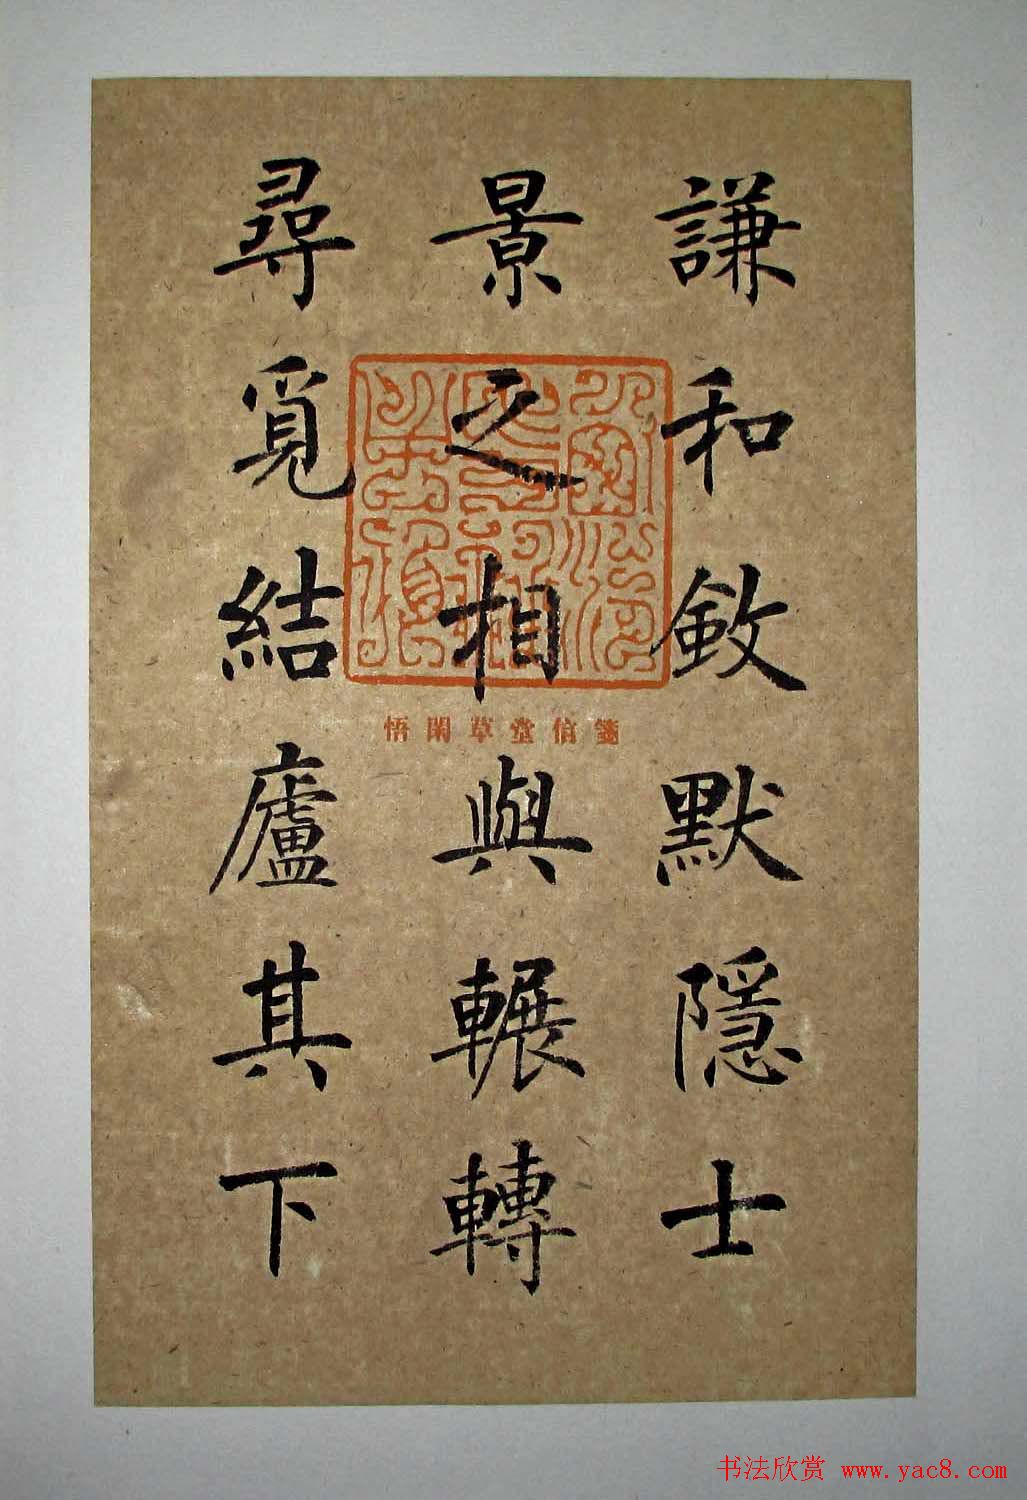 謙和敛默隱士
景之相與輾轉
尋覓結廬其下
悟閑草堂信箋
书法欣赏 www.yac8.com